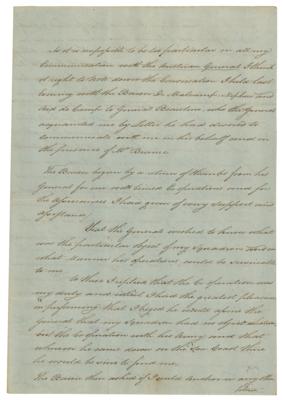 As it is impossible to be too particular in all my
Communication with the Austrian General I think
it right to note down the Conversation I held last
evening with the Baron De Malcamp Nephew and
Aid de Camp to General Beaulieu who the General
acquainted me by Letter he had desired to
communicate with me in his behalf and in
the presence of Mr Brame.
The Baron began by a return of thanks from his
General for my well timed Co operations and for
the Assurances I had given of every support and
Assistance
That the General wished to know what
was the particular object of my Squadron and in
what manner his Operations could be serviceable
to me.
To this I replied that the Co operation was
my duty and I had the greatest pleasure
in performing that I begged he would assure the
General that my Squadron had no object whatever
but the Co operation with his Army and that
whenever he came down on the Sea Coast there
he would be sure to find me.
The Baron then asked if I could anchor in any other